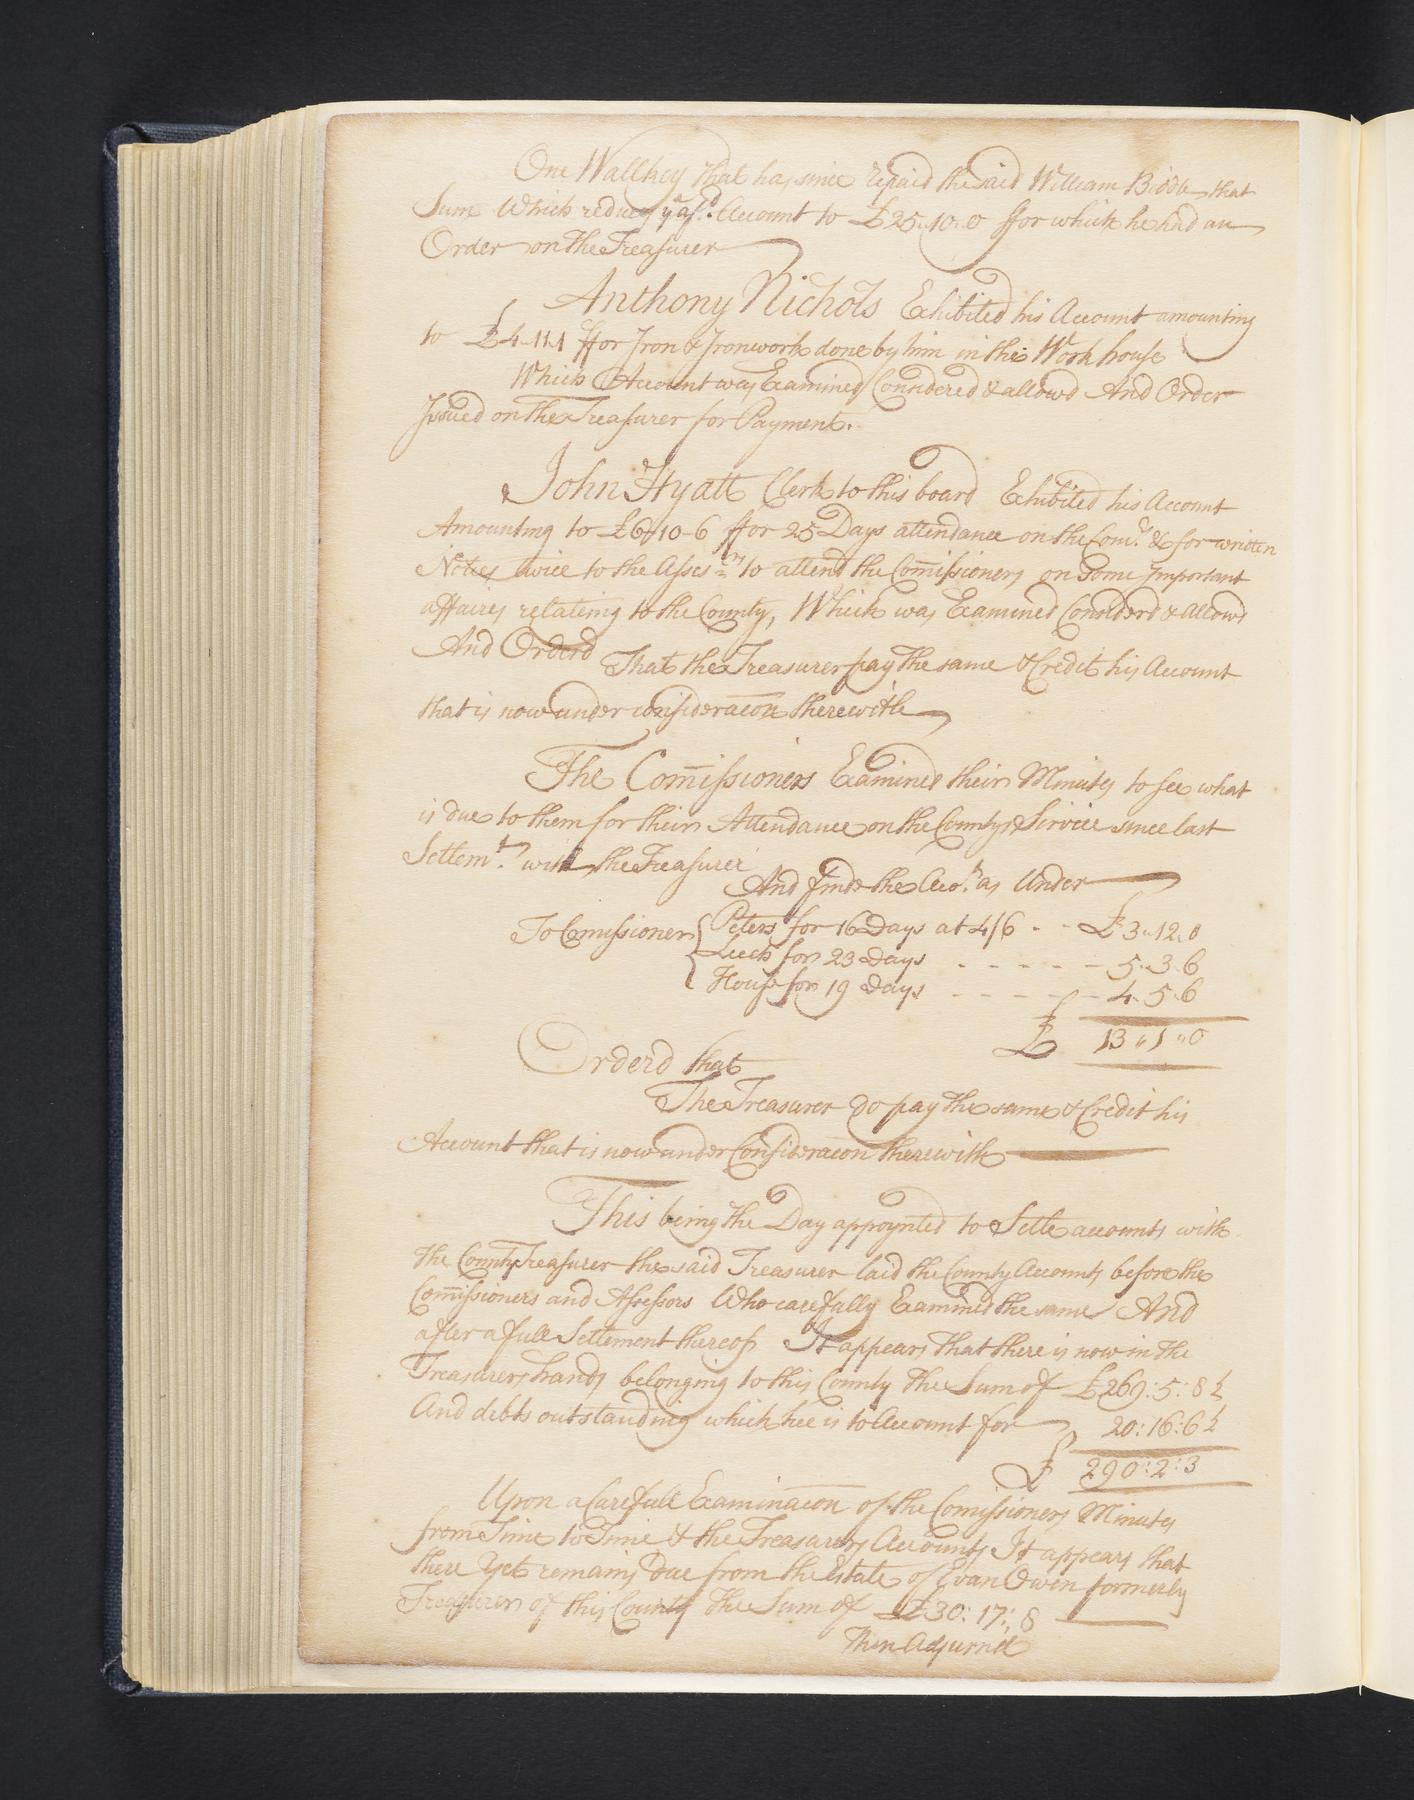 One Wallkey that has since repaid the said William Biddle that
Sum Which reduces ye afsd. Account to £25..10..0 ffor which he had an
Order on the Treasurer
Anthony Nichols Exhibited his Account amounting
to £4-11-1 ffor Iron & Ironwork done by him in the Workhouse
Which Account was Examined Considered & allowd And Order
Issued on the Treasurer for Payment.
John Hyatt Clerk to this board Exhibited his Account
Amounting to £6-10-6 ffor 25 Days attendance on the Comrs. & for written
Notices twice to the Assessrs to attend the Com̄issioners on Some Important
affaires relateing to the County, Which was Examined Considerd & allowd
And Orderd That the Treasurer pay the same & Credit his Account
that is now under considerac̄on therewith
The Com̄issioners Examined their Minutes to see what
is due to them for their Attendance on the Countys Service since last
Settemt. with the Treasurer
And finds the Acot. as Under
To Comissioners { Peters for 16 Days at 4/6 - - £3..12..0
Leech for 23 Days - - - - - 5..3..6
House for 19 Days - - - - - 4..5..6
£ 13 " 1 " 0
Orderd that
The Treasurer do pay the same & Credit his
Account that is now under Considerac̄on therewith
This being the Day appoynted to Settle accounts with
the County Treasurer the said Treasurer laid the County Accounts before the
Com̄issioners and Assessors Who carefully Examined the same And
after a full Settement thereof It appears that there is now in the
Treasurers hands belonging to this County the Sum of £269:5:8½
And debts outstanding which hee is to Account for 20:16:6½
£ 290:2:3
Upon a Carefull Examinac̄on of the Comissioners Minutes
from Time to Time & the Treasurers Accounts It appears that
there Yet remains Due from the Estate of Evan Owen formerly
Treasurer of this County the Sum of £30:17:8
Then Adjurned